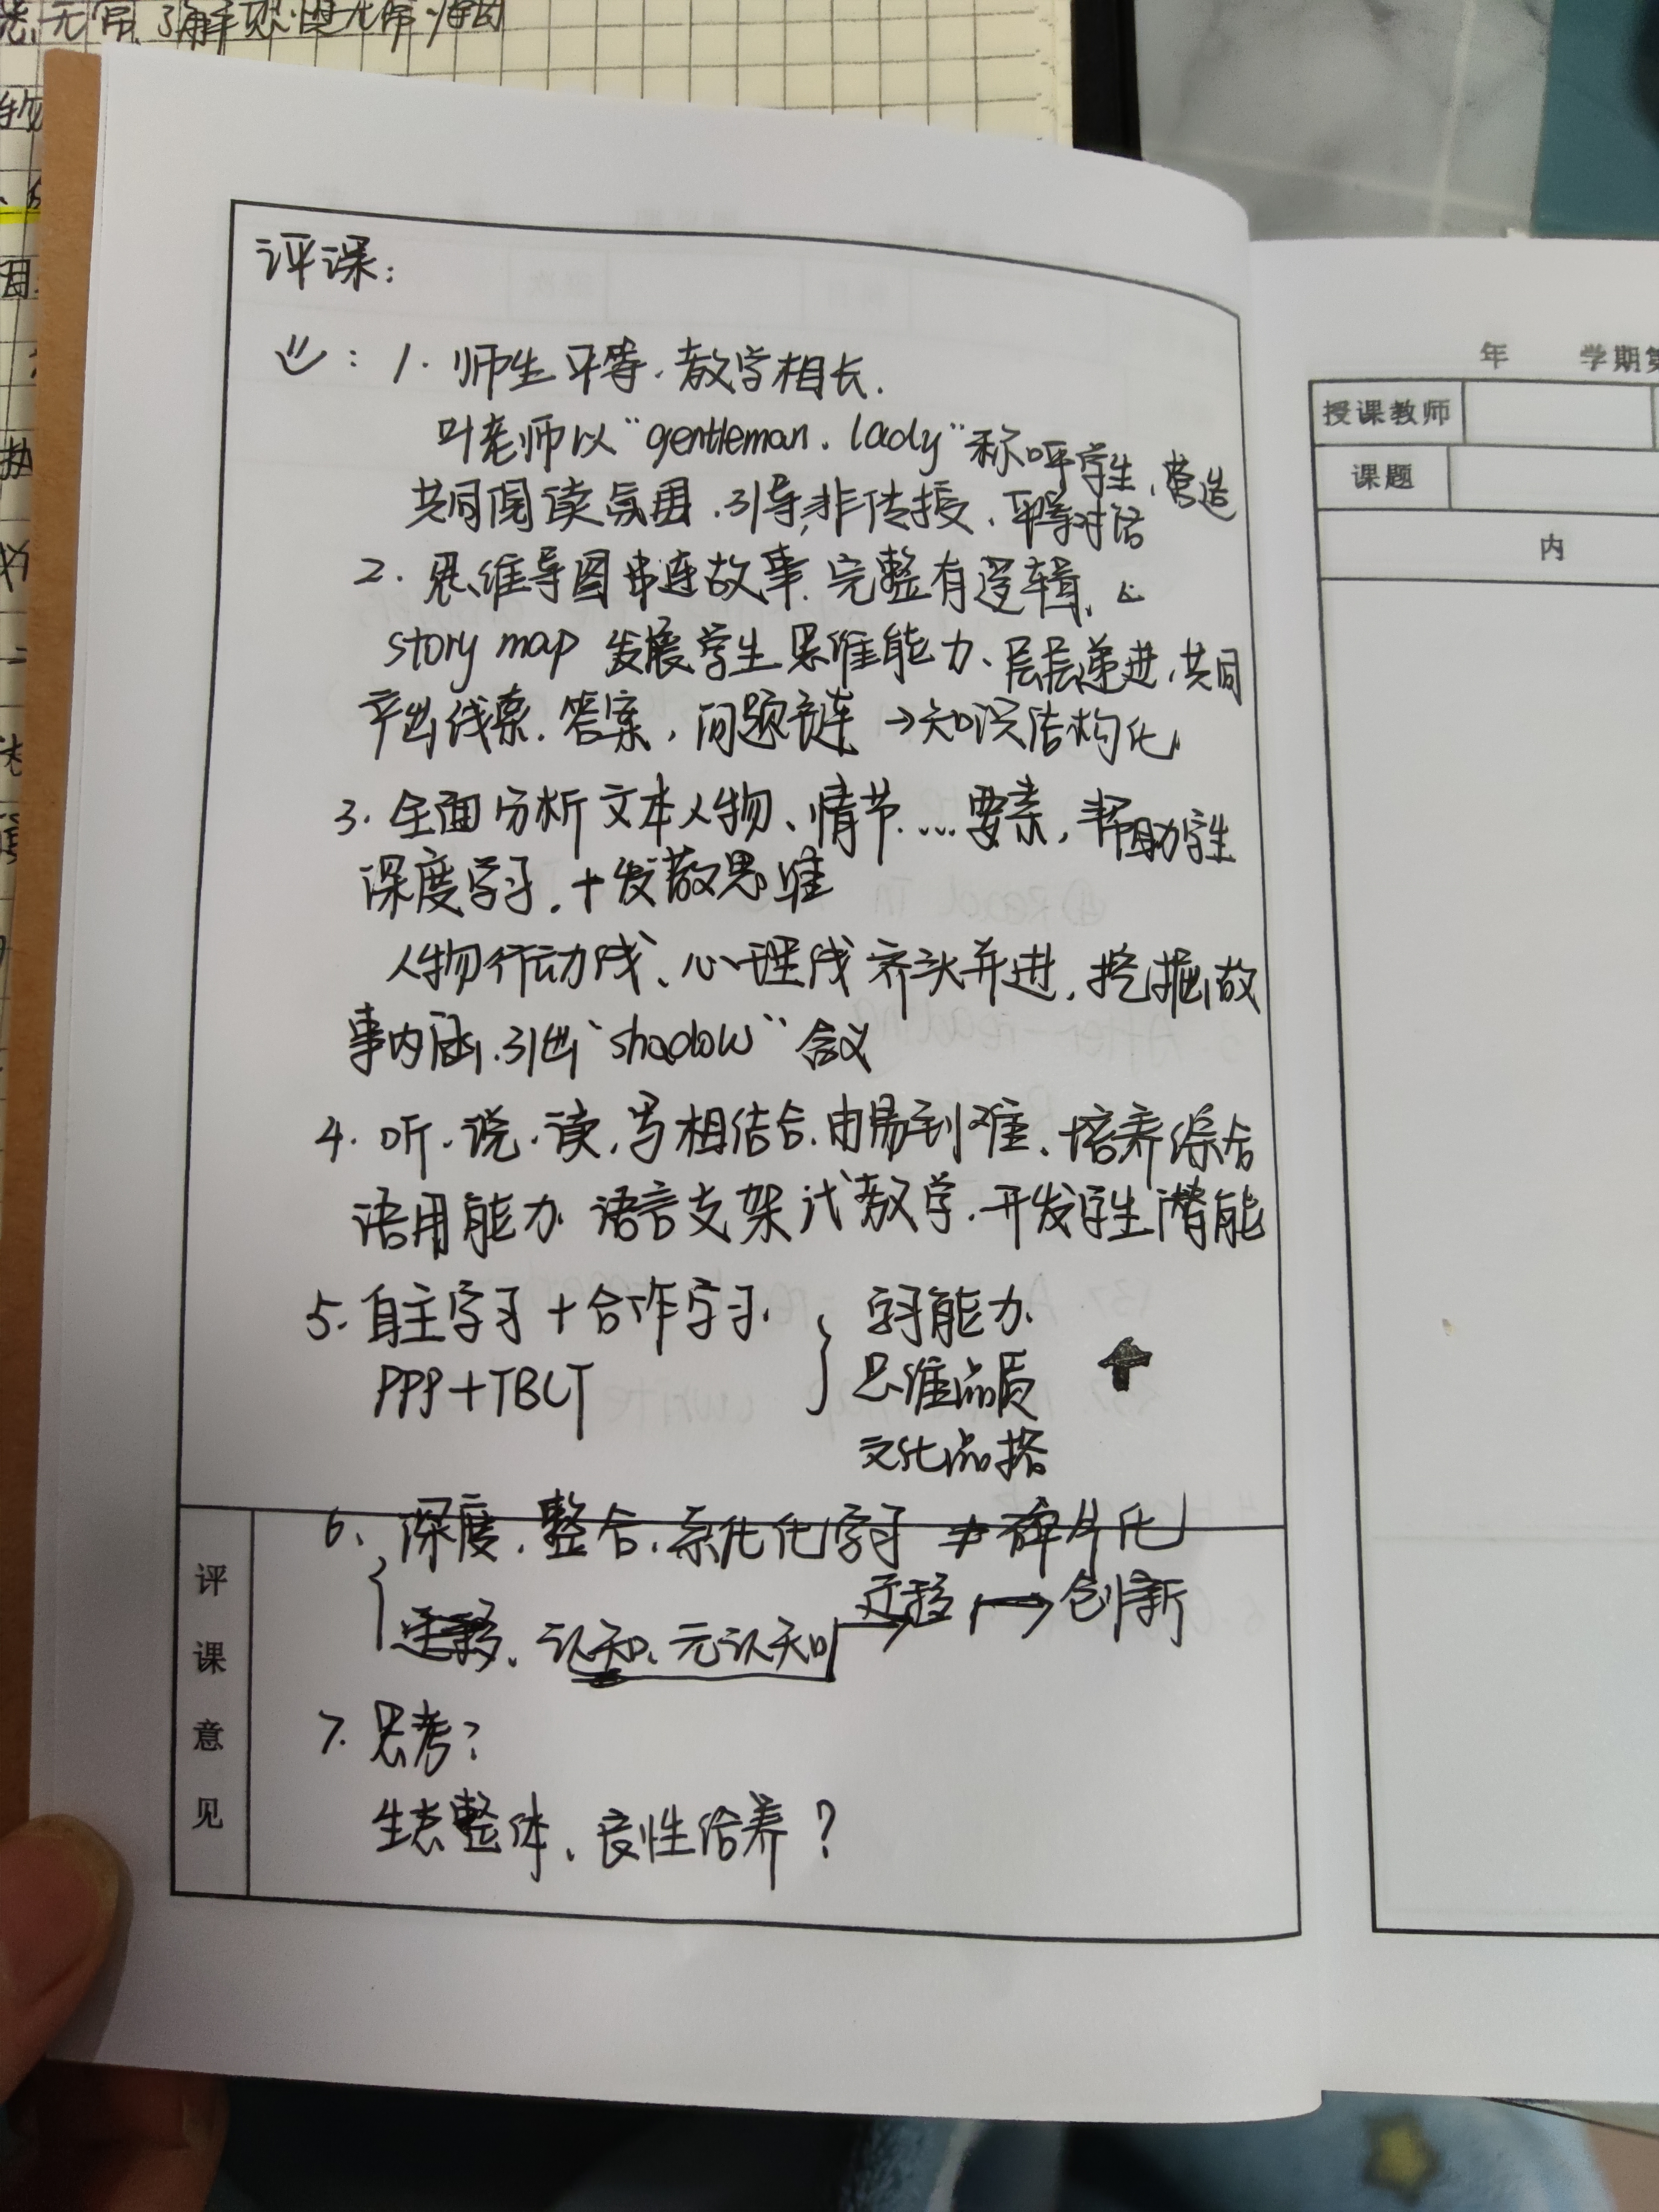 评课:
1. 师生平等.教学相长.
叶老师以“gentleman.lady”称呼学生、营造
共同阅读氛围.引导,非传授、平等对话
2. 思维导图串连故事.完整有逻辑、
story map 发展学生思维能力、层层递进,共同
产出线索.答案,问题链→知识结构化
3. 全面分析文本人物、情节...要素,帮助学生
深度学习.+发散思维
人物行动线、心理线齐头并进,挖掘故
事内涵.引出“shadow”含义
4. 听.说.读.写相结合.由易到难、培养综合
语用能力.语言支架式教学.开发学生潜能
5. 自主学习+合作学习.
PPP+TBLT
学习能力.
思维品质
文化品格
6. 深度.整合.系化化学习≠碎片化
认知、元认知→迁移→创新
7. 思考?
生态整体、良性给养?
评课意见
年 学期第
授课教师
课题
内